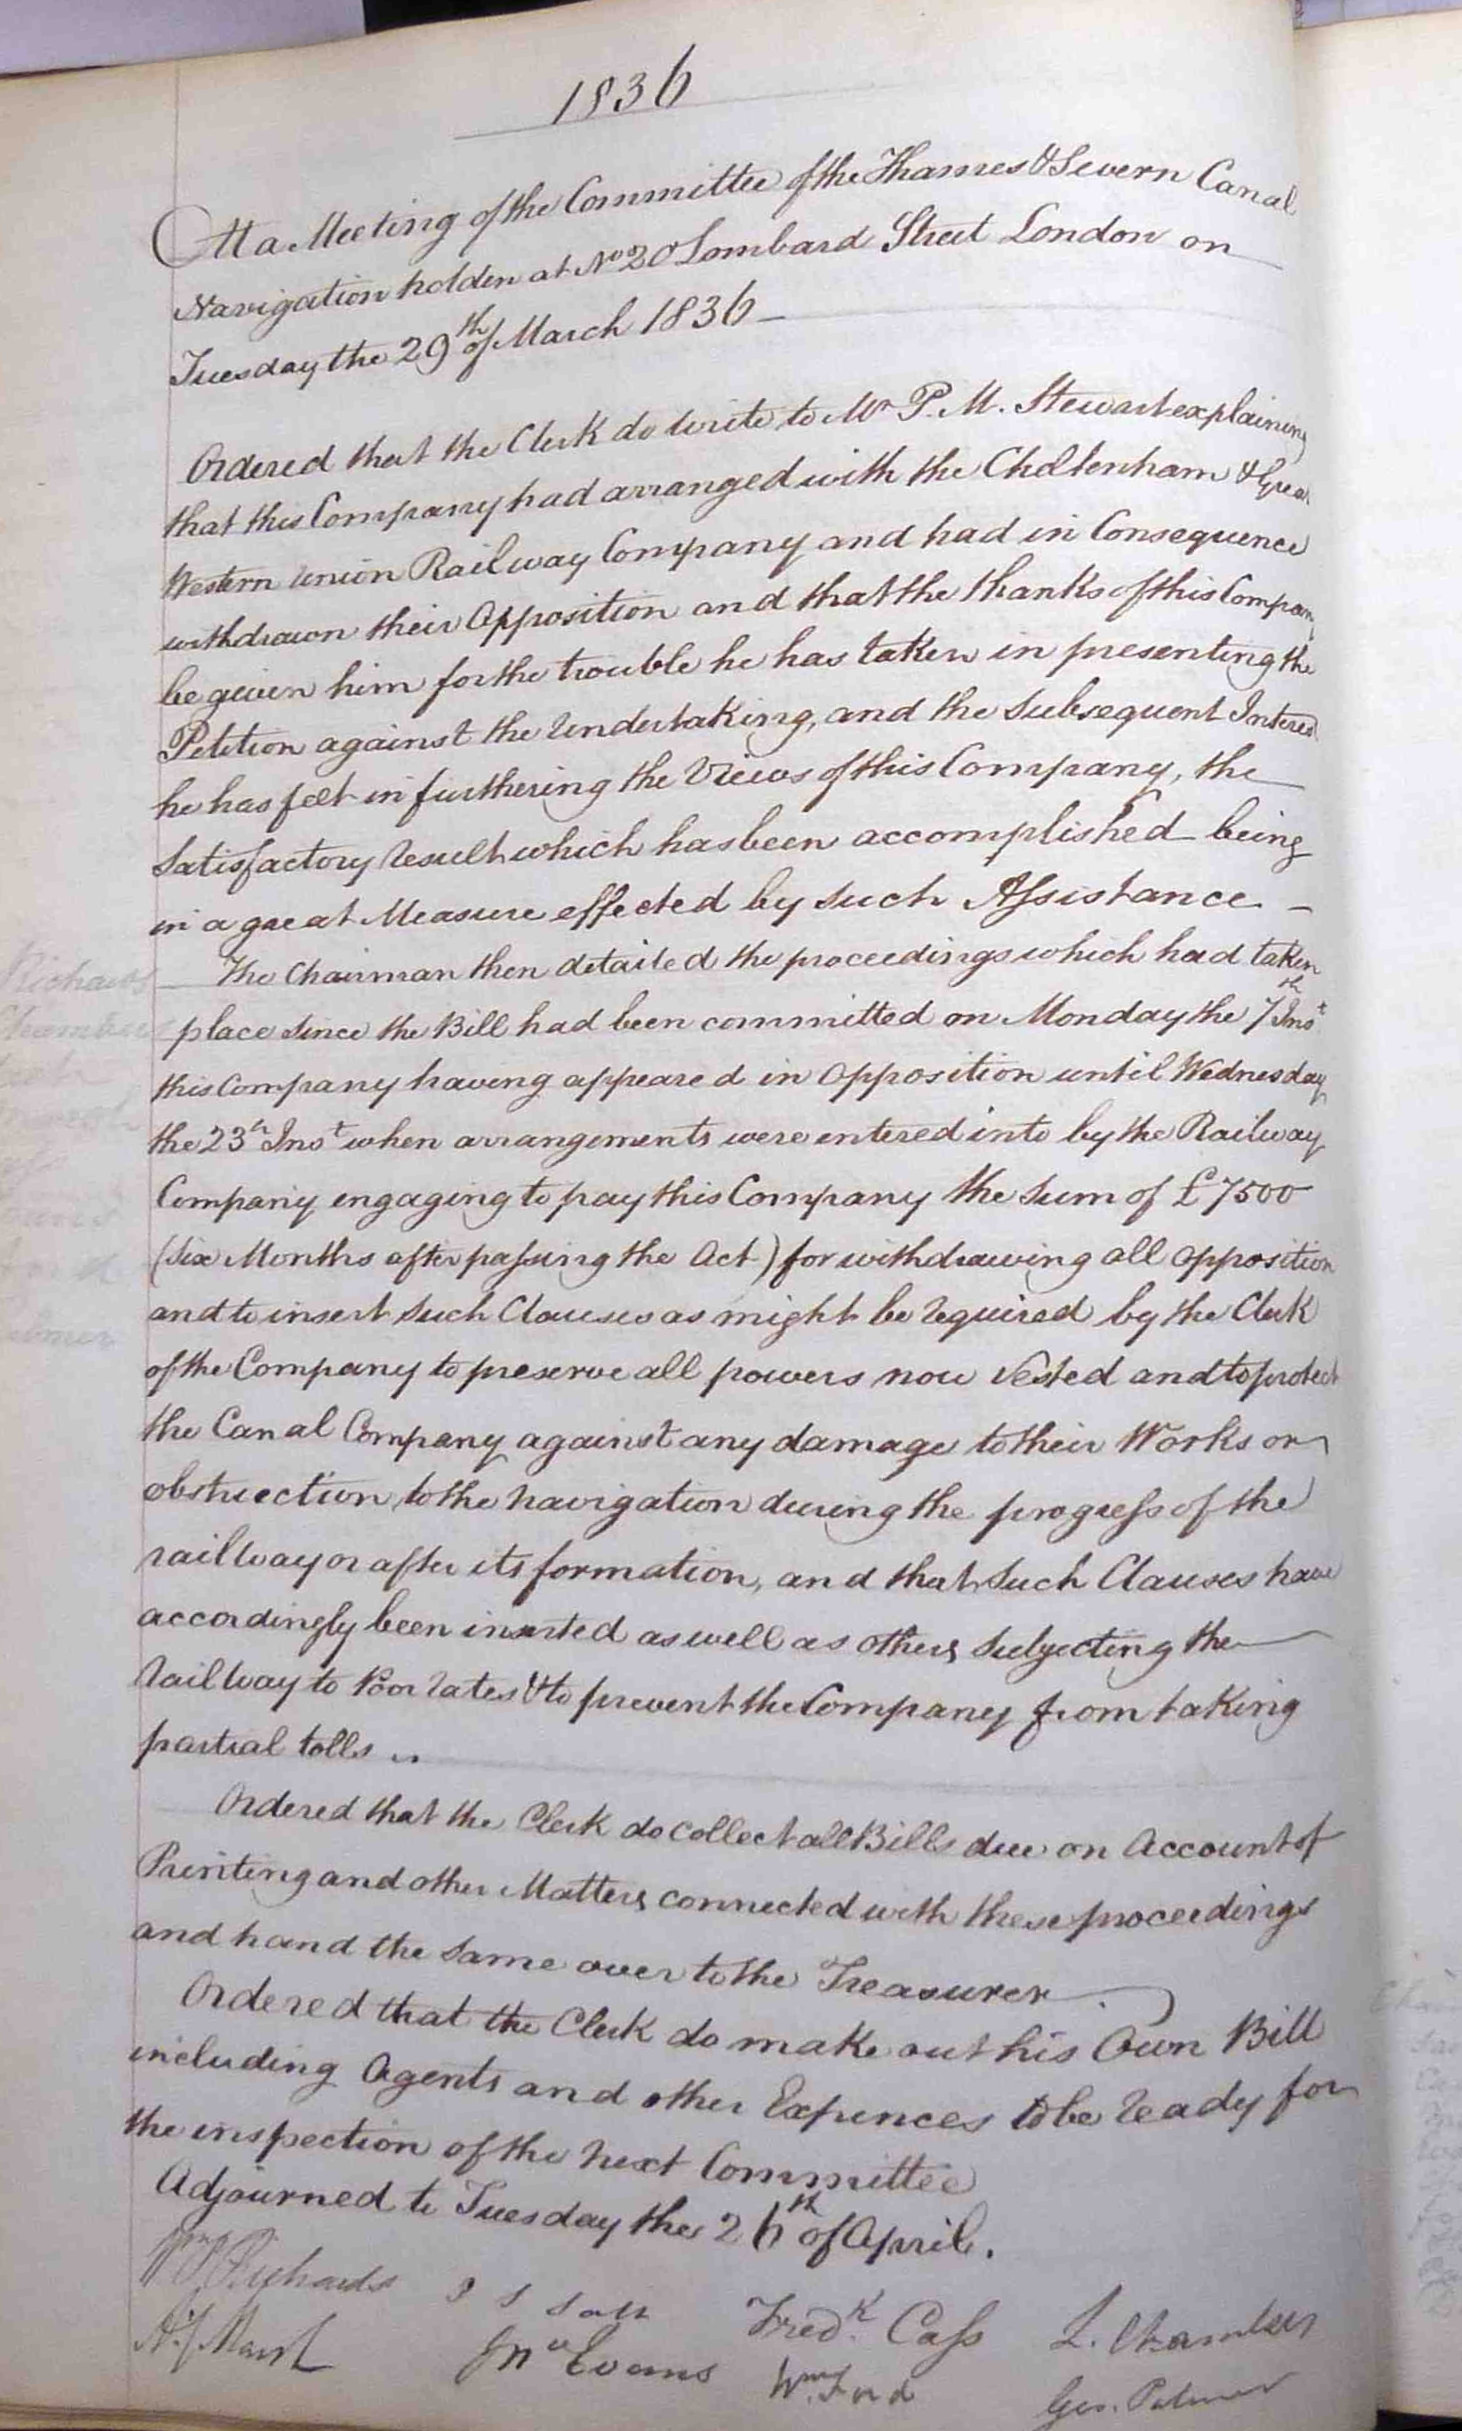 1836
At a Meeting of the Committee of the Thames & Severn Canal
Navigation holden at No 20 Lombard Street London on
Tuesday the 29th of March 1836 –
Ordered that the Clerk do write to Mr P. M. Stewart explaining
that this Company had arranged with the Cheltenham & Great
Western Union Railway Company and had in Consequence
withdrawn their Opposition and that the thanks of this Company
be given him for the trouble he has taken in presenting the
Petition against the Undertaking, and the Subsequent Interest
he has felt in furthering the Views of this Company, the
Satisfactory Result which has been accomplished being
in a great Measure effected by such Assistance –
The Chairman then detailed the proceedings which had taken
place since the Bill had been committed on Monday the 7th Inst
this Company having appeared in Opposition until Wednesday
the 23rd Inst when arrangements were entered into by the Railway
Company engaging to pay this Company the Sum of £7500
(Six Months after passing the Act) for withdrawing all opposition
and to insert such Clauses as might be required by the Clerk
of the Company to preserve all powers now Vested and to protect
the Canal Company against any damage to their Works or
obstruction to the navigation during the progress of the
railway or after its formation, and that such Clauses have
accordingly been inserted as well as others subjecting the
Railway to Poor rates & to prevent the Company from taking
partial tolls
Ordered that the Clerk do collect all Bills due on Account of
Printing and other Matters connected with these proceedings
and hand the same over to the Treasurer
Ordered that the Clerk do make out his Own Bill
including Agents and other Expences to be ready for
the inspection of the next Committee
Adjourned to Tuesday the 26th of April.
Wm P Richards J S Salt Fredk. Cass L. Chambers
Jno Evans Wm Ford Geo. Palmer